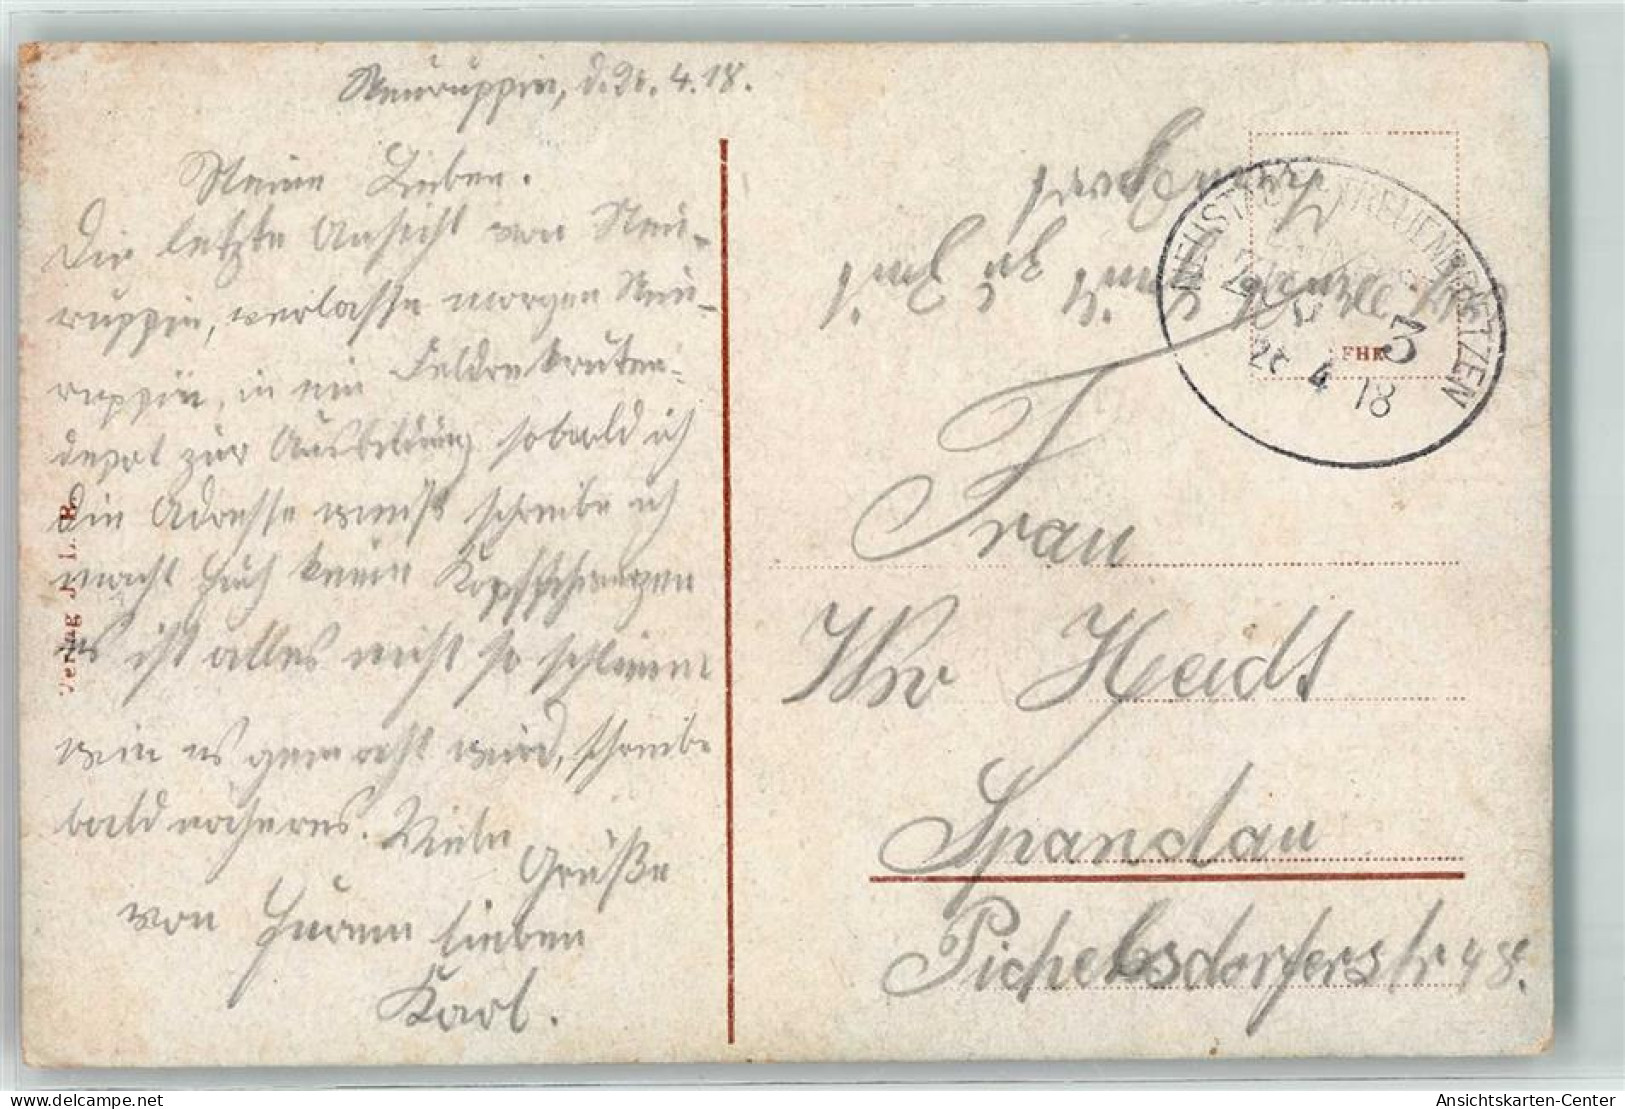 Neuruppin, d. 26.4.18.
Meine Lieben.
Die letzte Ansicht von Neu-
ruppin, verlasse morgen Neu-
ruppin, in ein Feldrekruten-
depot zur Ausbildung sobald ich
die Adresse weiß schreibe ich
macht Euch keine Kopfschmerzen
es ist alles nicht so schlimm
wie es gemacht wird, schreibe
bald näheres. Viele
Grüße
von Eurem lieben
Karl.
Verlag J. L. B.
NEUSTADT TREUENBRIETZEN
ZUG 3
26 4 18
Frau
Ww Heidt
Spandau
Pichelsdorferstr 48.
Ansichtskarten-Center